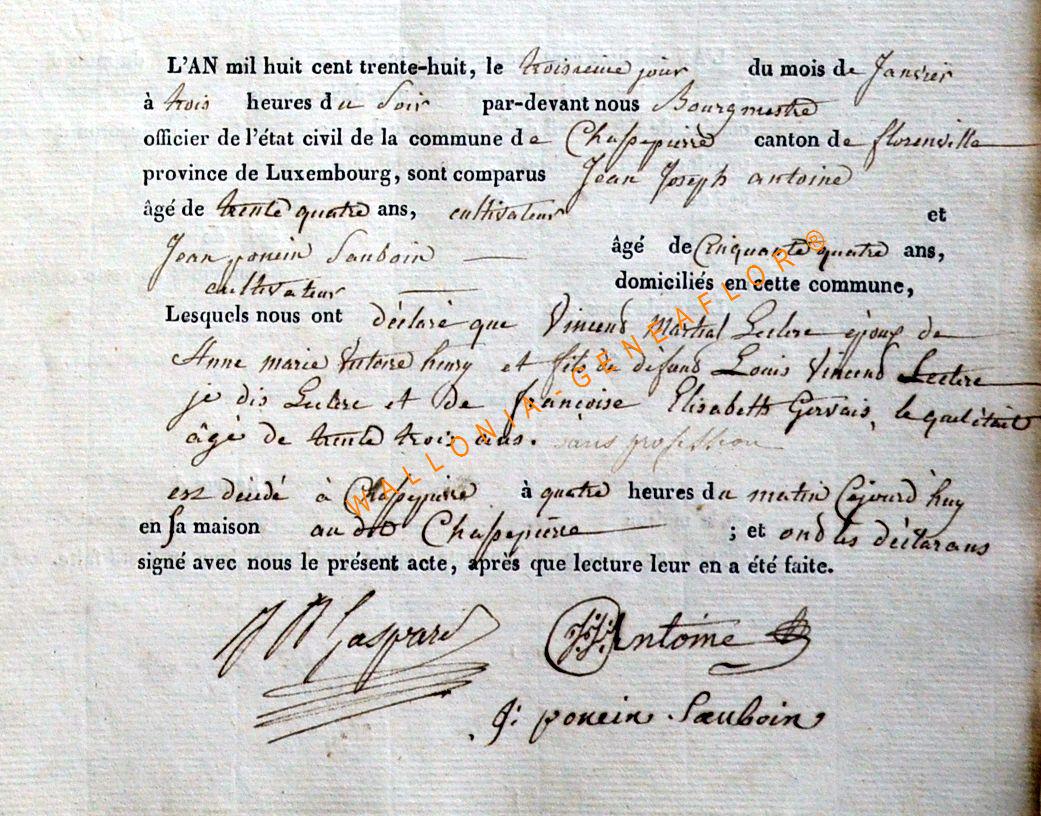 L'AN mil huit cent trente-huit, le troisieme jour du mois de Janvier
à trois heures du Soir par-devant nous Bourgmestre
officier de l'état civil de la commune de Chassepierre canton de florenville
province de Luxembourg, sont comparus Jean Joseph antoine
âgé de trente quatre ans, cultivateur et
Jean poncin Sauboin âgé de Cinquante quatre ans,
cultivateur domiciliés en cette commune,
Lesquels nous ont déclaré que Vincend Martial Leclere époux de
Anne marie Victoire henry et fils de défund Louis Vincend Leclere
je dis Leclere et de françoise Elisabeth Gervais, le quel étoit
âgé de trente trois ans. sans profession
est décédé à Chassepierre à quatre heures du matin cejourd'huy
en sa maison au dit Chassepierre ; et ond les déclarans
signé avec nous le présent acte, après que lecture leur en a été faite.
Gaspard J.J. Antoine
J: poncin Sauboin
WALLONIA-GENEAFLOR®